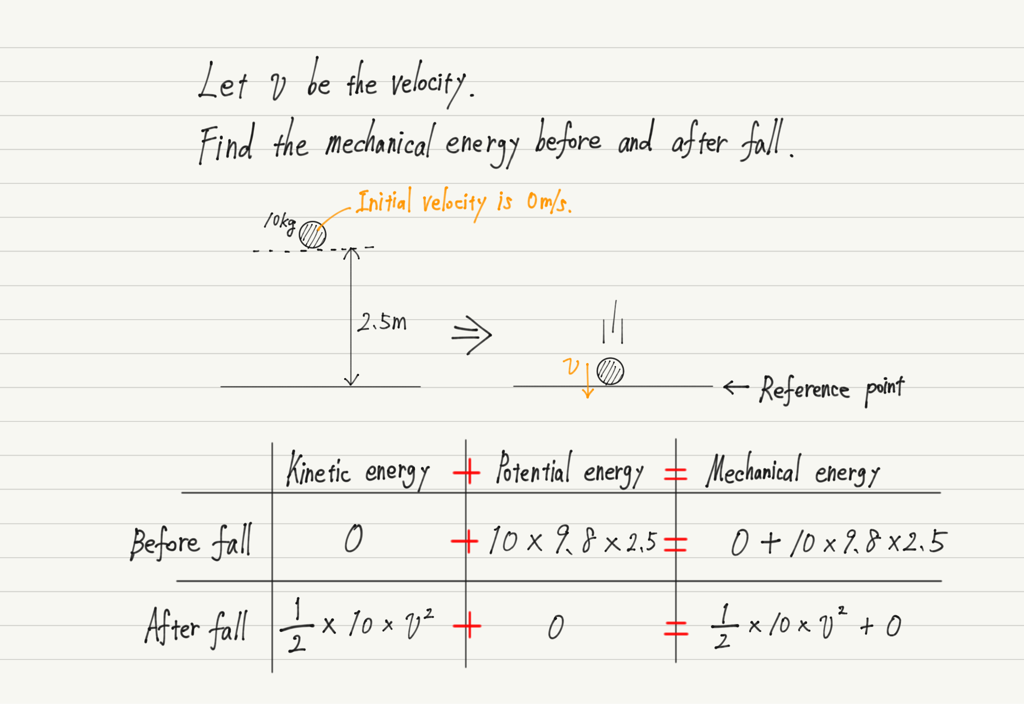 Let v be the velocity.
Find the mechanical energy before and after fall.
Initial velocity is 0m/s.
10kg
2.5m
v
← Reference point
Kinetic energy + Potential energy = Mechanical energy
Before fall 0 + 10 × 9.8 × 2.5 = 0 + 10 × 9.8 × 2.5
After fall 1/2 × 10 × v² + 0 = 1/2 × 10 × v² + 0